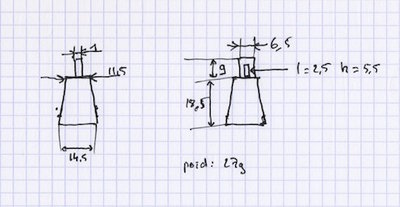 1
6,5
11,5
9
l=2,5 h=5,5
18,5
14,5
poid: 27g